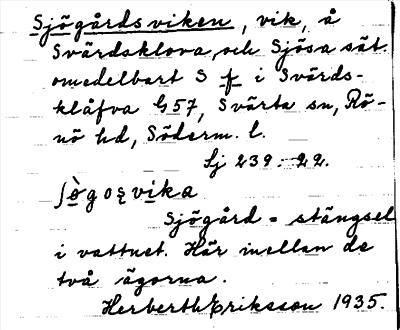 Sjögårdsviken, vik, å
Svärdsklova, och Sjösa sät.
omedelbart S f i Svärds-
klåfva G57, Svärta sn, Rö-
nö hd, Söderm. l.
Lj 239: 22.
ʃögoʂvika
Sjögård = stängsel
i vattnet. Här mellan de
två ägorna.
Herberth Eriksson 1935.